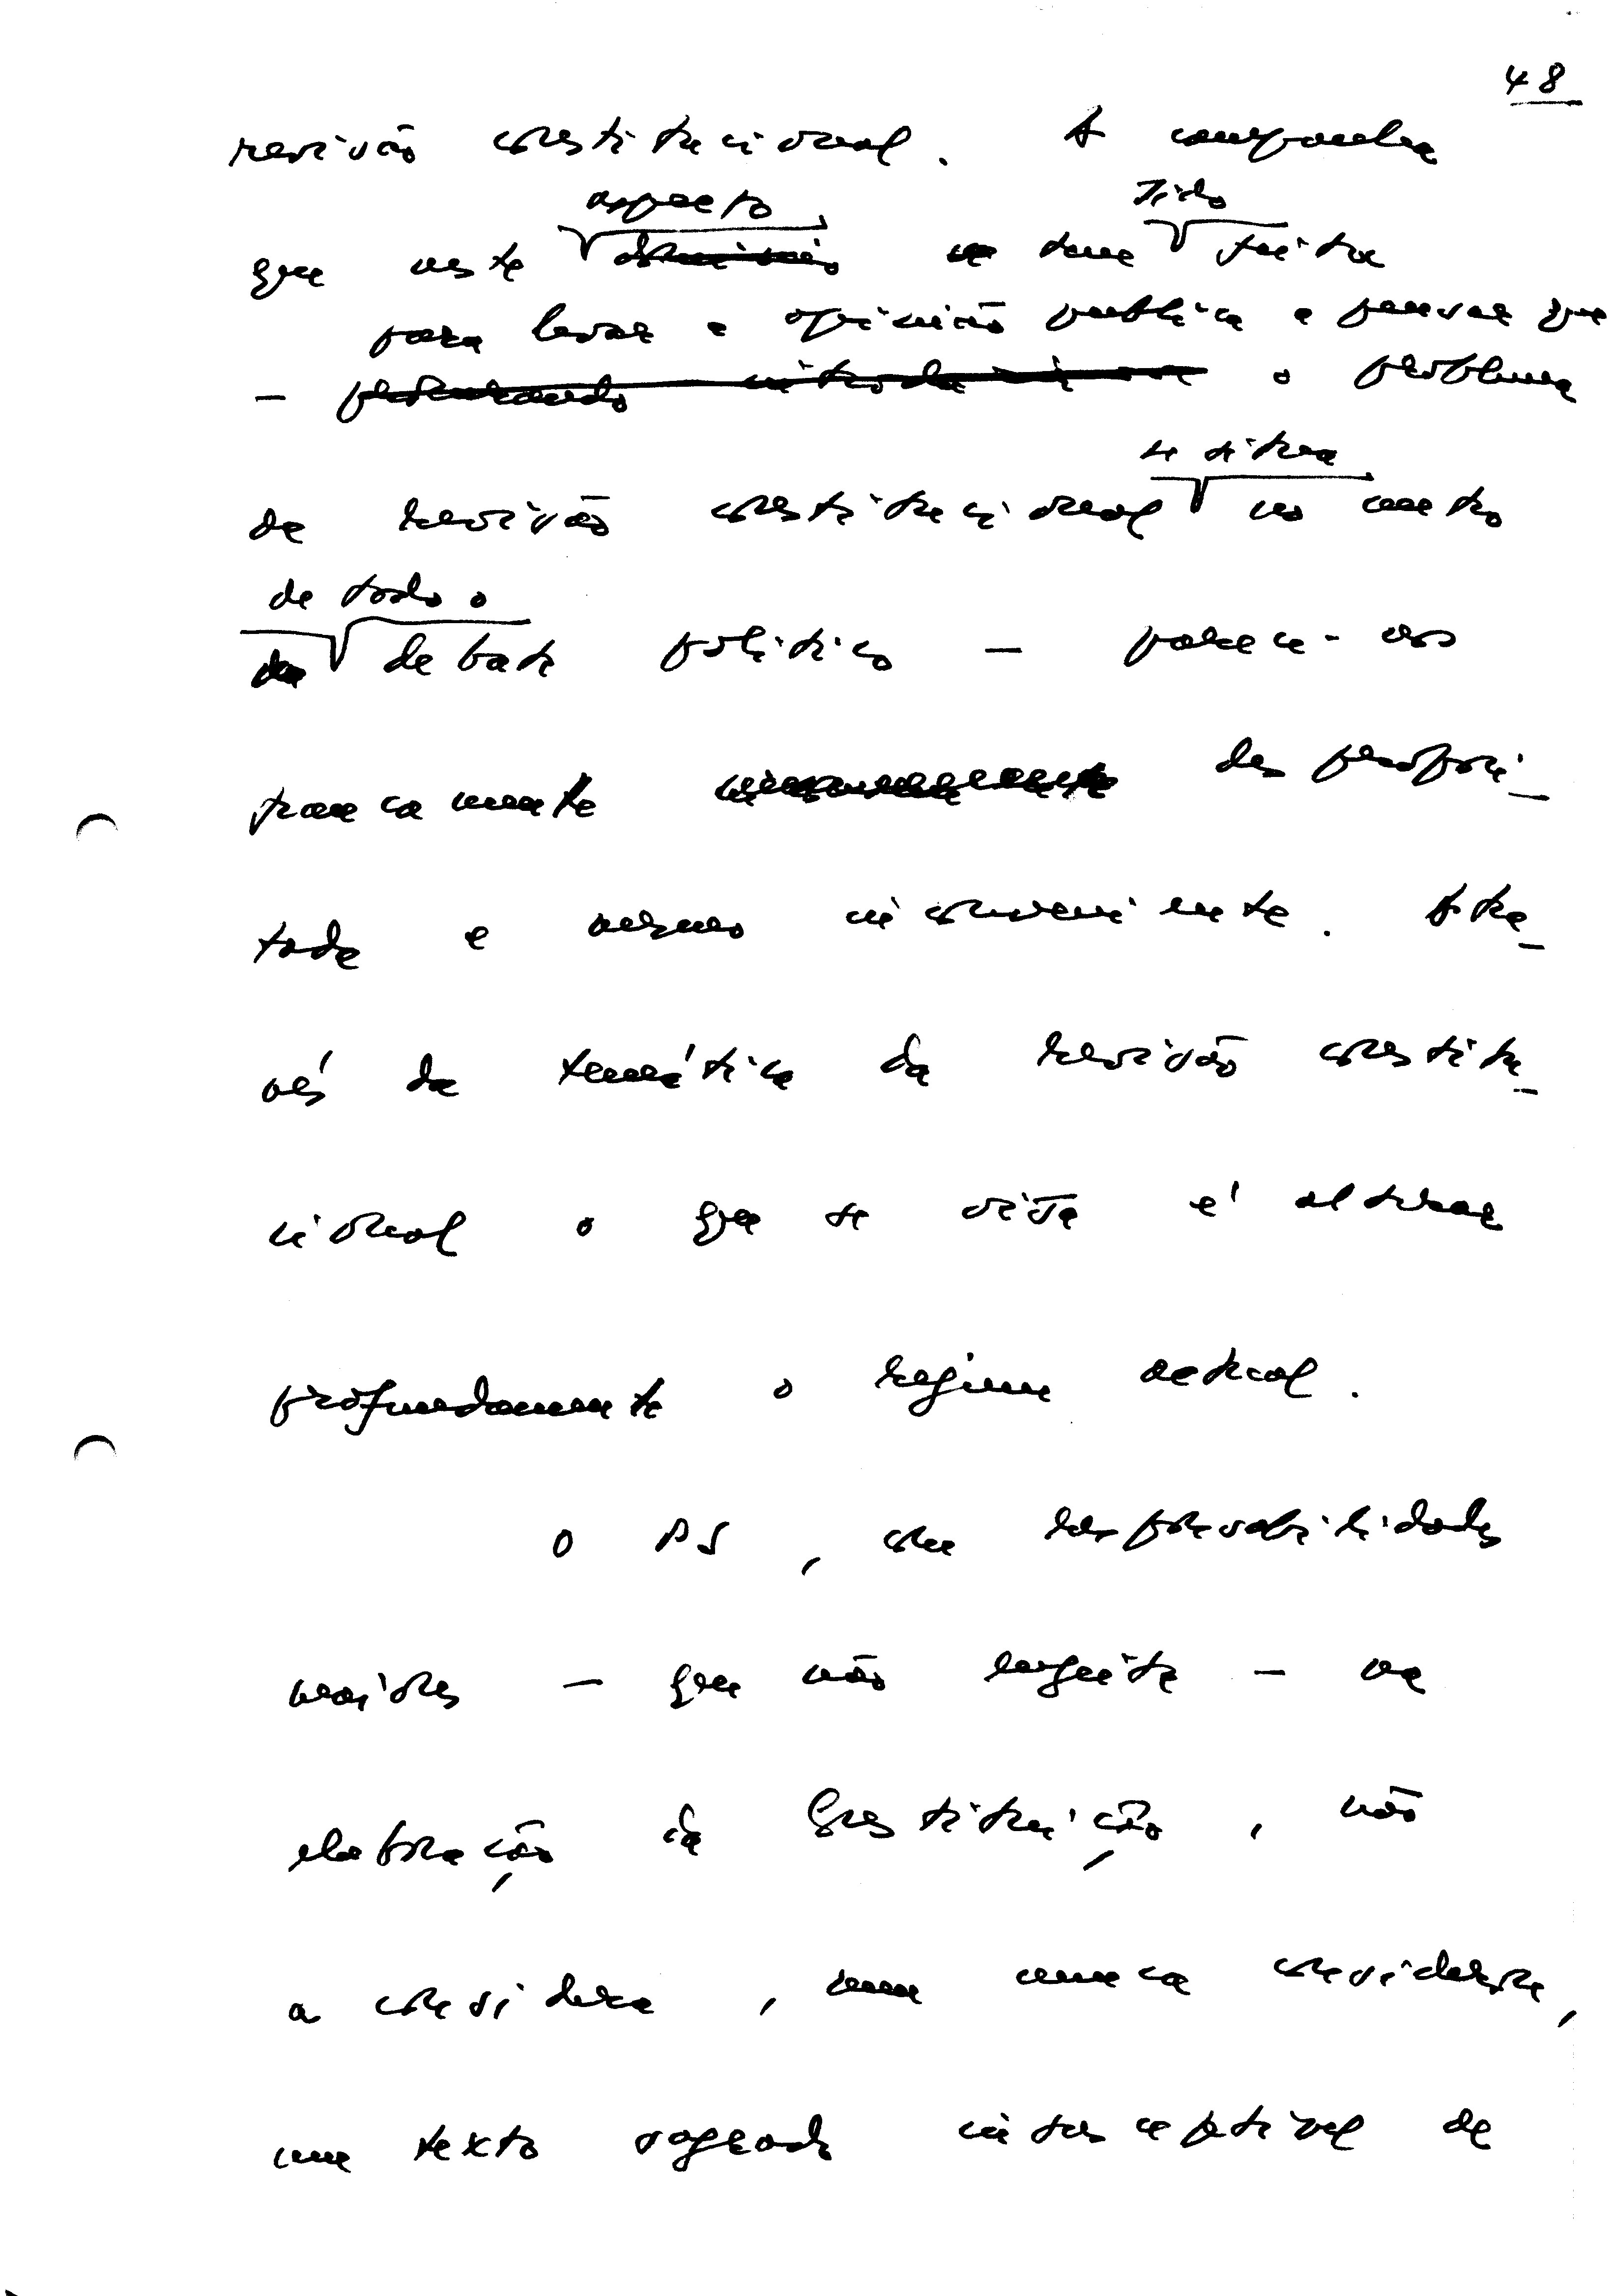 48
revisão constitucional. A campanha
aspecto tido
que neste tem feita
para levar a opinião publica a pensar que
— o problema
se situa
da revisão constitucional no centro
de todo o
debate politico — parece-nos
francamente despropori-
tada e mesmo inconveniente. Atra-
vés da temática da revisão constitu-
cional o que se visa é alterar
profundamente o regime actual.
O PS, com responsabilidades
maiores — que não rejeita — na
elaboração da Constituição, não
a considera, nem nunca considerou,
um texto sagrado insusceptivel de